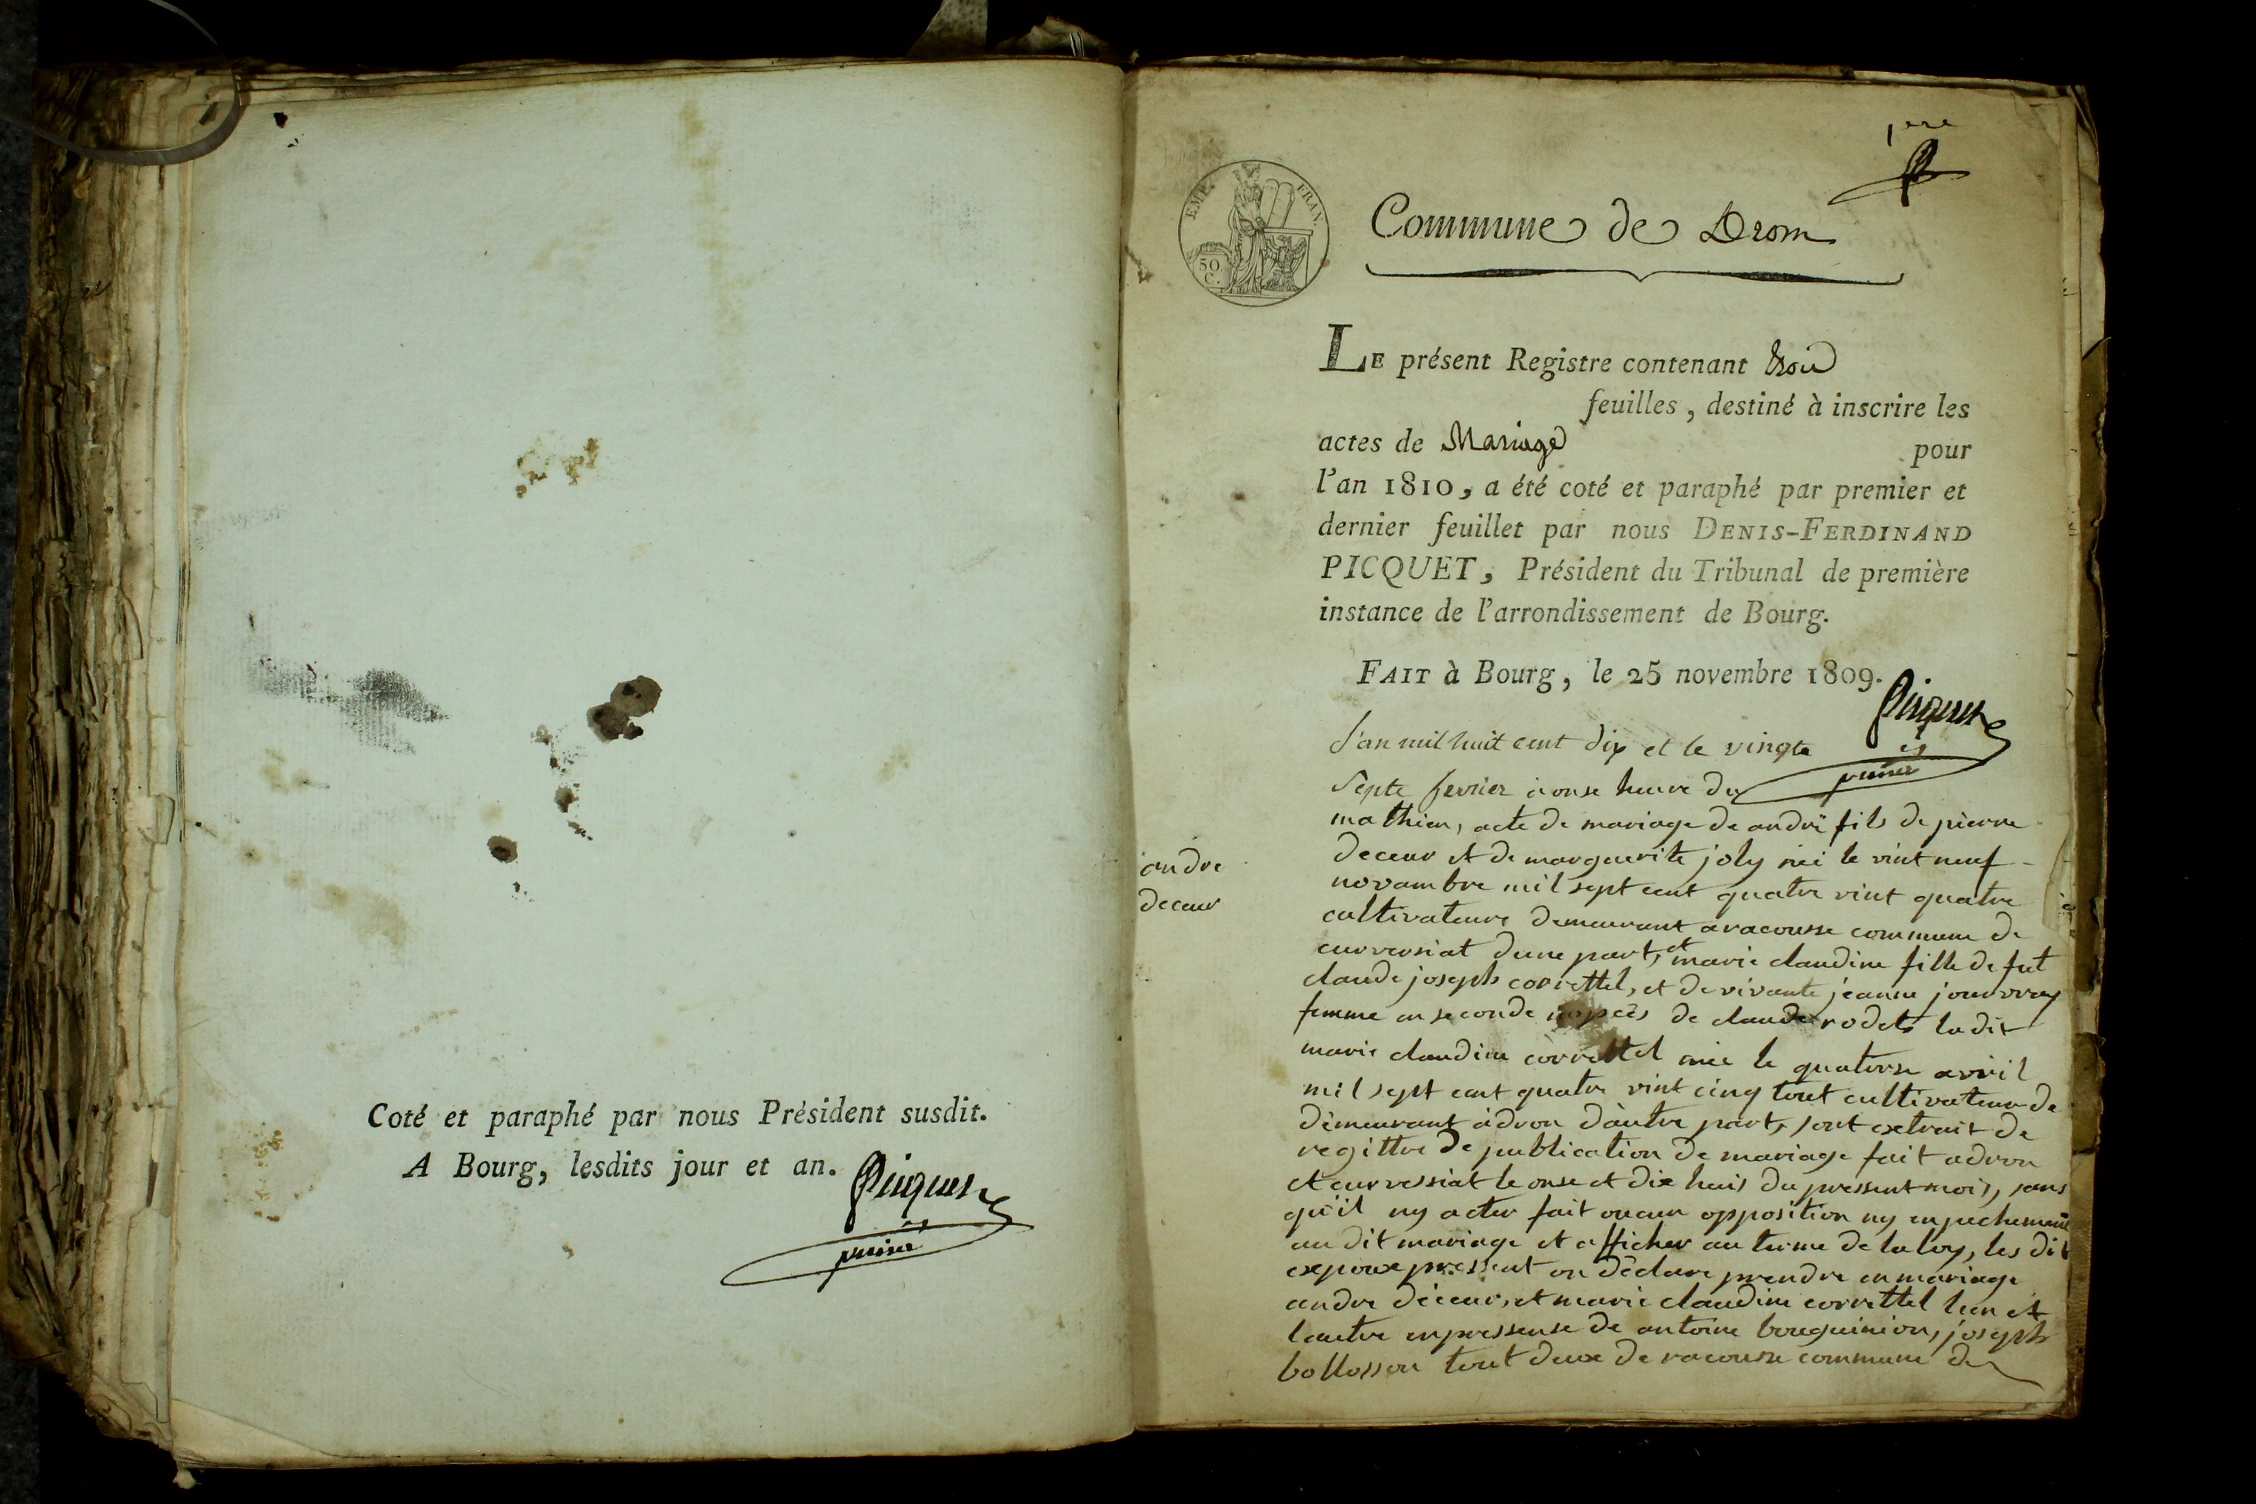 Coté et paraphé par nous Président susdit.
A Bourg, lesdits jour et an.
Picquet
1ere
EMP. FRAN.
50
C.
Commune de Drom
LE présent Registre contenant trois
feuilles, destiné à inscrire les
actes de Mariage pour
l'an 1810, a été coté et paraphé par premier et
dernier feuillet par nous DENIS-FERDINAND
PICQUET, Président du Tribunal de première
instance de l'arrondissement de Bourg.
FAIT à Bourg, le 25 novembre 1809.
Picquet
andre
deceur
L'an mil huit cent dix et le vingte
septe fevrier a onse heure du
mathien, acte de mariage de andré fils de pierre
deceur et de marguerite joly néé le vint neuf
novambre mil sept cent quatre vint quatre
cultivateure demeurant a racousse commune de
curversiat dune part, et marie claudine fille de fut
claude joseph correttel, et de vivante jeanne
femme en seconde de claude rodet la dit
marie claudine correttel née le quatorse avril
mil sept cent quatre vint cinq tout cultivateur de
demeurant adron dautre part, sont extrait de
regittre de publication de mariage fait adron
et curvessiat le onse et dix huis du pressent mois, sans
qu'il ny acter fait oucun opposition ny enpechement
au dit mariage et afficher au terme de la loy, les dit
expoux pressent on déclare prendre en mariage
andre déceur, et marie claudine correttel lun et
lautre enpressense de antoine bouguinion, joseph
bollosson tout deux de racousse commune de